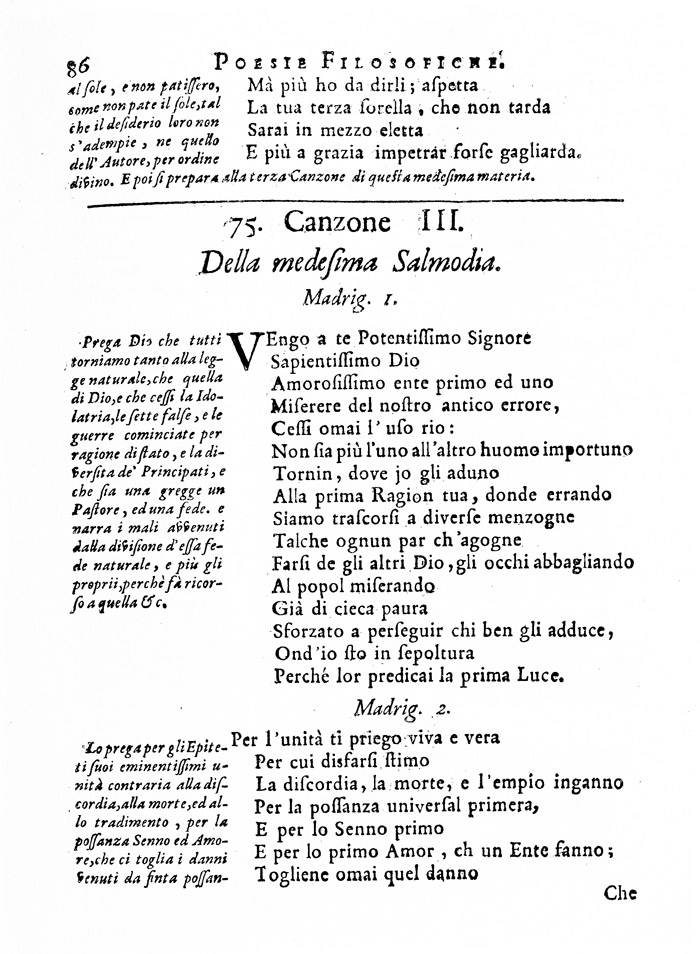 86
POESIE FILOSOFICHE.
al ſole, e non patiſſero,
come non pate il ſole, tal
che il deſiderio loro non
s'adempie, ne quello
dell' Autore, per ordine
divino. E poi ſi prepara alla terza Canzone di queſta medeſima materia.
Mà più ho da dirli; aſpetta
La tua terza ſorella, che non tarda
Sarai in mezzo eletta
E più a grazia impetrar forſe gagliarda.
75. Canzone III.
Della medeſima Salmodia.
Madrig. 1.
Prega Dio che tutti
torniamo tanto alla leg-
ge naturale, che quella
di Dio, e che ceſſi la Ido-
latria, le ſette falſe, e le
guerre cominciate per
ragione di ſtato, e la di-
verſita de' Principati, e
che ſia una gregge un
Paſtore, ed una fede. e
narra i mali avvenuti
dalla diviſione d'eſſa fe-
de naturale, e più gli
proprii, perchè fà ricor-
ſo a quella &c.
VEngo a te Potentiſſimo Signore
Sapientiſſimo Dio
Amoroſiſſimo ente primo ed uno
Miſerere del noſtro antico errore,
Ceſſi omai l' uſo rio:
Non ſia più l'uno all'altro huomo importuno
Tornin, dove jo gli aduno
Alla prima Ragion tua, donde errando
Siamo traſcorſi a diverſe menzogne
Talche ognun par ch'agogne
Farſi de gli altri Dio, gli occhi abbagliando
Al popol miſerando
Già di cieca paura
Sforzato a perſeguir chi ben gli adduce,
Ond'io ſto in ſepoltura
Perché lor predicai la prima Luce.
Madrig. 2.
Lo prega per gli Epite-
ti ſuoi eminentiſſimi u-
nità contraria alla diſ-
cordia, alla morte, ed al-
lo tradimento, per la
poſſanza Senno ed Amo-
re, che ci toglia i danni
venuti da finta poſſan-
Per l'unità ti priego viva e vera
Per cui disfarſi ſtimo
La diſcordia, la morte, e l'empio inganno
Per la poſſanza univerſal primera,
E per lo Senno primo
E per lo primo Amor, ch un Ente fanno;
Togliene omai quel danno
Che